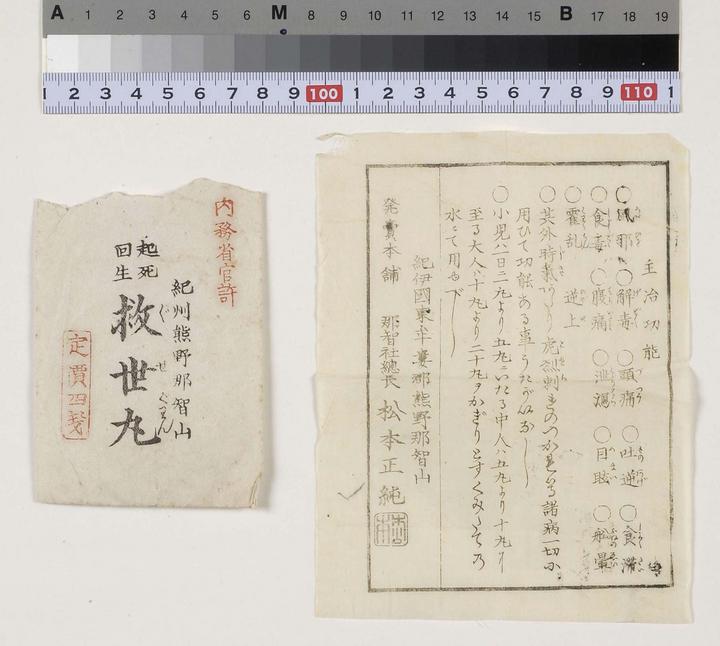 A 1 2 3 4 5 6 7 M 8 9 10 11 12 13 14 15 B 17 18 19
1 2 3 4 5 6 7 8 9 100 1 2 3 4 5 6 7 8 9 110 1
内務省官許
紀州熊野那智山
起死
回生
救世丸
ぐせぐわん
定賈四銭
主治功能
〇風邪 〇解毒 〇頭痛 〇吐逆 〇食滞
〇食毒 〇腹痛 〇泄瀉 〇目眩 〇船暈
〇霍乱 逆上
〇其外時氣 虎列刺 諸病一切
用ひて功能ある事うたがひなし
〇小児八日二丸より五丸 いたる中人八五丸より十丸
至る大人八十丸より二十丸をかぎりとすくみたての
水にて用ゆべし
紀伊國東牟婁郡熊野那智山
発賣本舗 那智社總長 松本正純